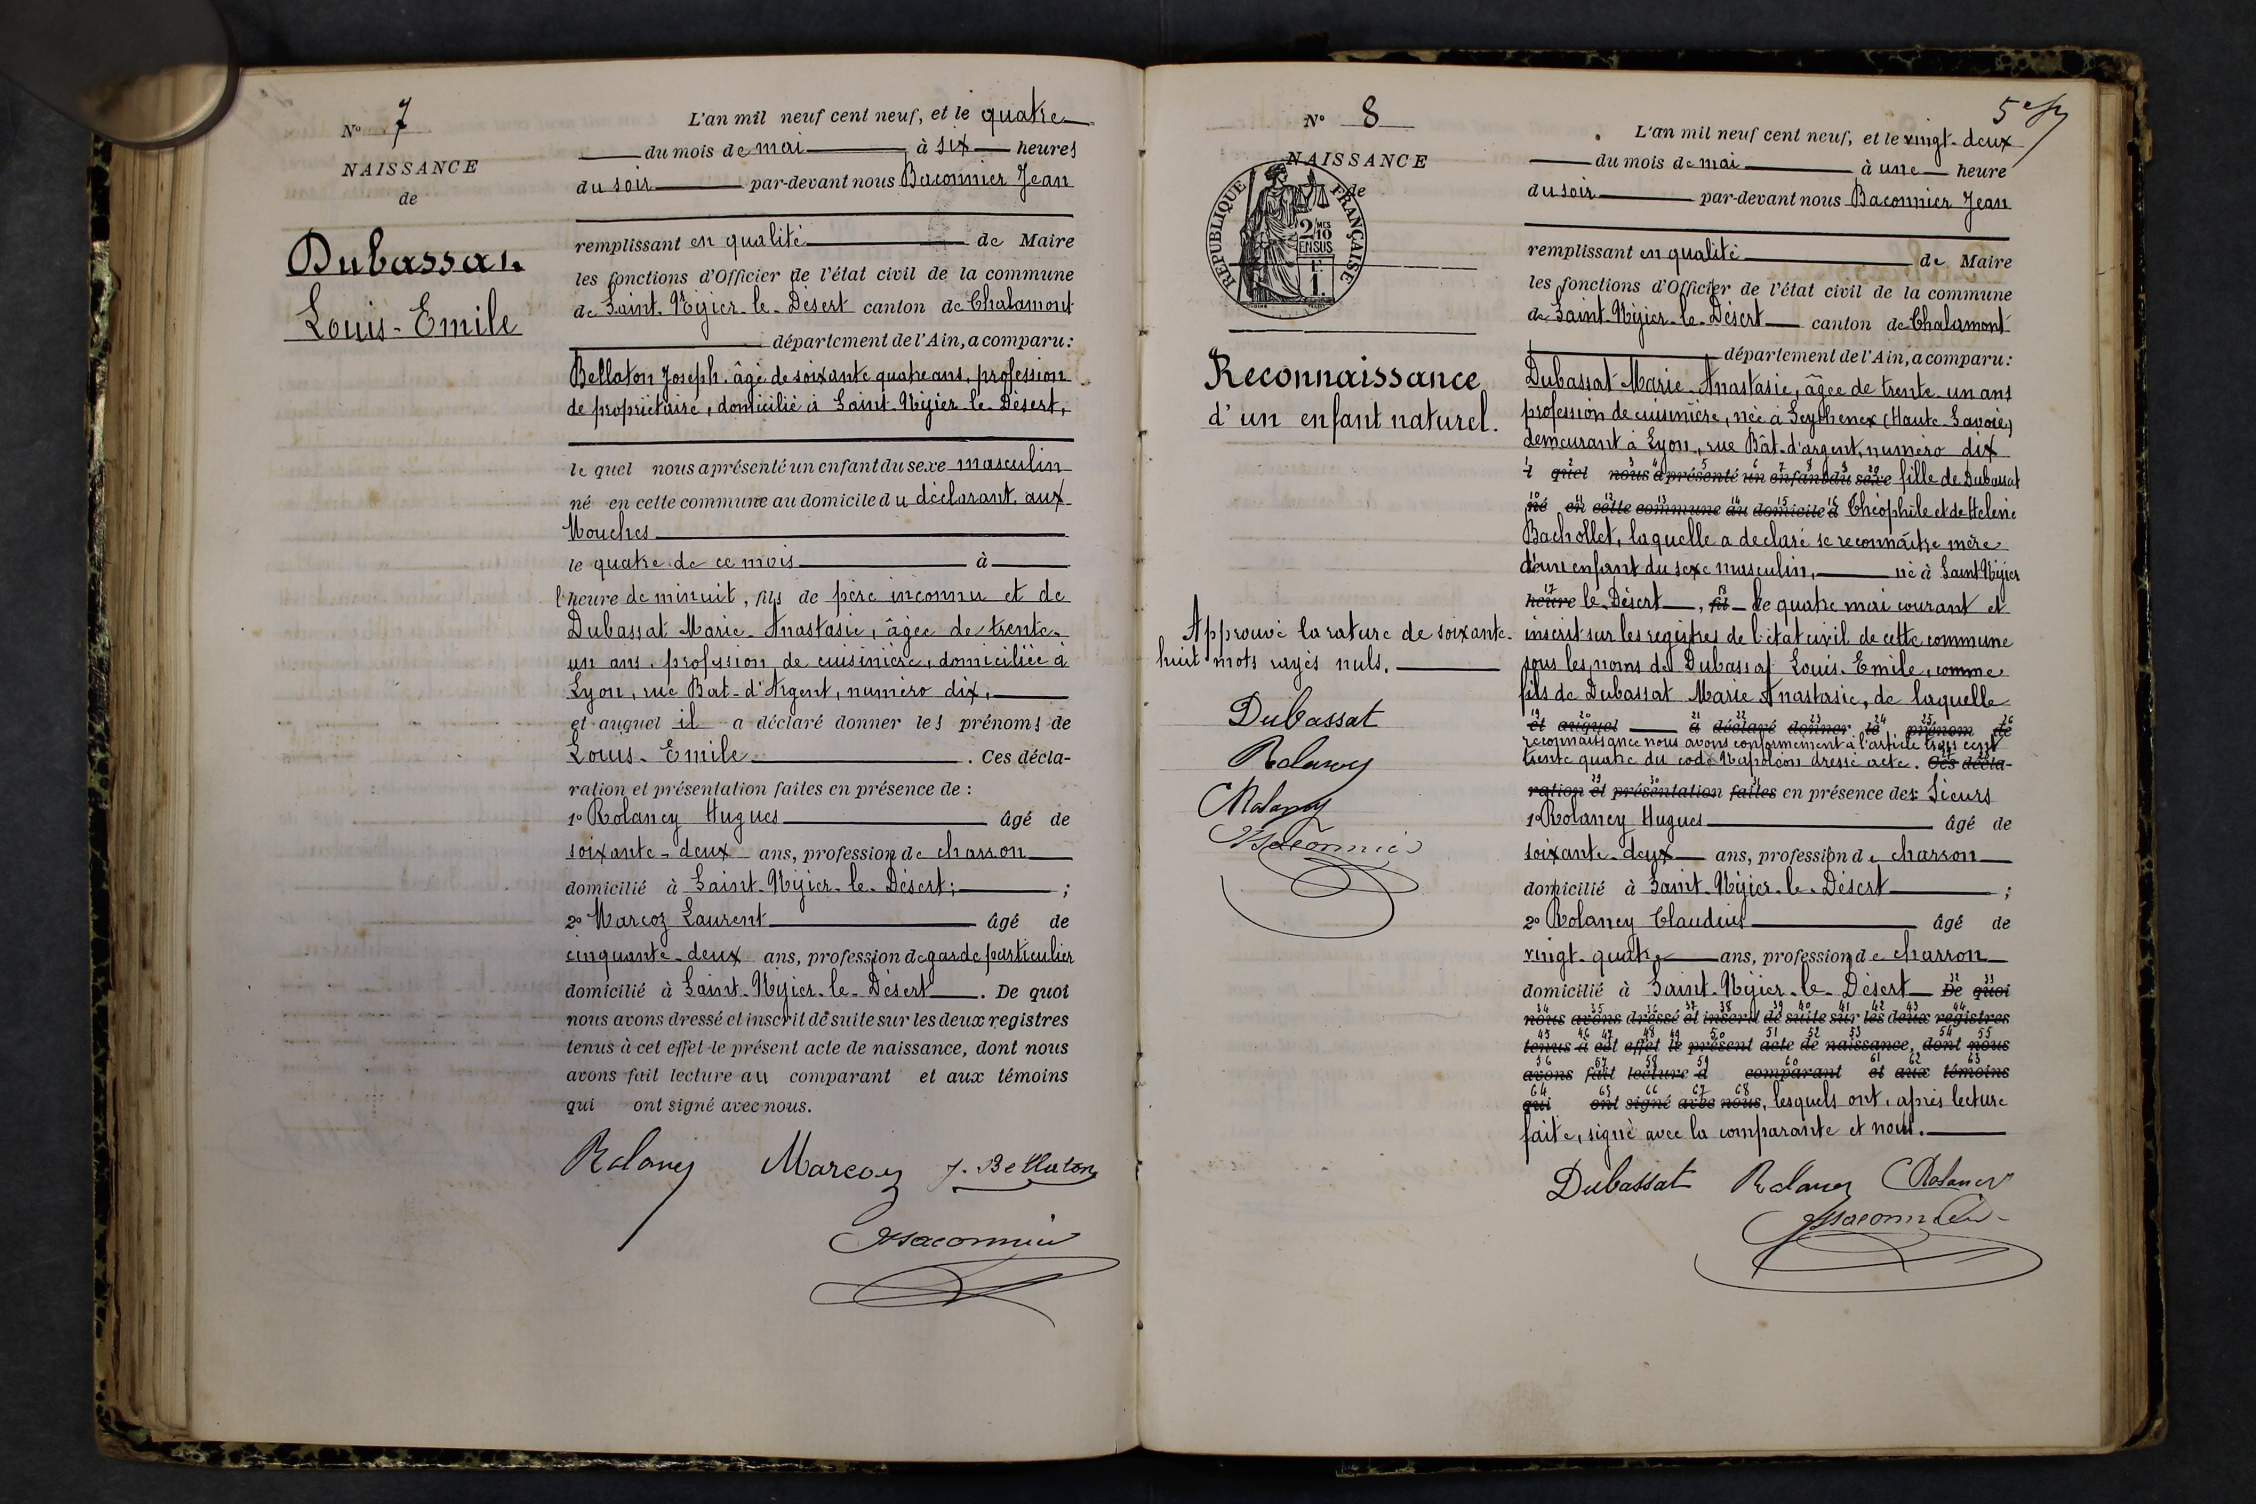 N° 7
NAISSANCE
de
Dubassat
Louis-Emile
L'an mil neuf cent neuf, et le quatre
du mois de mai à six heures
du soir par-devant nous Baconnier Jean
remplissant en qualité de Maire
les fonctions d'Officier de l'état civil de la commune
de Saint-Nizier-le-Désert canton de Chalamont
département de l'Ain, a comparu:
Bellaton Joseph, âgé de soixante quatre ans, profession
de propriétaire, domicilié à Saint-Nizier-le-Désert,
le quel nous a présenté un enfant du sexe masculin
né en cette commune au domicile du déclarant, aux
Mouches
le quatre de ce mois à
l'heure de minuit, fils de père inconnu et de
Dubassat Marie-Anastasie, âgée de trente-
un ans, profession de cuisinière, domiciliée à
Lyon, rue Bat-d'Argent, numéro dix,
et auquel il a déclaré donner les prénoms de
Louis-Emile. Ces décla-
ration et présentation faites en présence de :
1° Rolancy Hugues âgé de
soixante-deux ans, profession de charron
domicilié à Saint-Nizier-le-Désert; ;
2° Marcoz Laurent âgé de
cinquante-deux ans, profession de garde particulier
domicilié à Saint-Nizier-le-Désert. De quoi
nous avons dressé et inscrit de suite sur les deux registres
tenus à cet effet le présent acte de naissance, dont nous
avons fait lecture au comparant et aux témoins
qui ont signé avec nous.
Rolancy Marcoz J. Bellaton
JBaconnier
5e f
N° 8
NAISSANCE
de
REPUBLIQUE FRANÇAISE
2/10 MES
EN SUS
1F.
Reconnaissance
d'un enfant naturel.
Approuvé la rature de soixante-
huit mots rayés nuls.
Dubassat
Rolancy
CRolancy
JBaconnier
L'an mil neuf cent neuf, et le vingt-deux
du mois de mai à une heure
du soir par-devant nous Baconnier Jean
remplissant en qualité de Maire
les fonctions d'Officier de l'état civil de la commune
de Saint-Nizier-le-Désert canton de Chalamont
département de l'Ain, a comparu:
Dubassat Marie-Anastasie, âgée de trente-un ans
profession de cuisinière, née à Seythenex (Haute-Savoie)
demeurant à Lyon, rue Bât-d'argent, numéro dix
l quel nous a présenté un enfant du sexe fille de Dubassat
né en cette commune au domicile d Théophile et de Hélène
Bachollet, laquelle a déclaré se reconnaître mère
d'un enfant du sexe masculin, né à Saint Nizier
heure le-Désert, fil le quatre mai courant et
inscrit sur les registres de l'état civil de cette commune
sous les noms de Dubassat Louis-Emile, comme
fils de Dubassat Marie Anastasie, de laquelle
et auquel a déclaré donner le prénom de
reconnaissance nous avons conformément à l'article trois cent
trente quatre du code Napoléon dressé acte. Ces décla-
ration et présentation faites en présence des Sieurs
1° Rolancy Hugues âgé de
soixante-deux ans, profession de charron
domicilié à Saint-Nizier-le-Désert ;
2° Rolancy Claudius âgé de
vingt-quatre ans, profession de charron
domicilié à Saint-Nizier-le-Désert De quoi
nous avons dressé et inscrit de suite sur les deux registres
tenus à cet effet le présent acte de naissance, dont nous
avons fait lecture a comparant et aux témoins
qui ont signé avec nous, lesquels ont, après lecture
faite, signé avec la comparante et nous.
Dubassat Rolancy CRolancy
JBaconnier